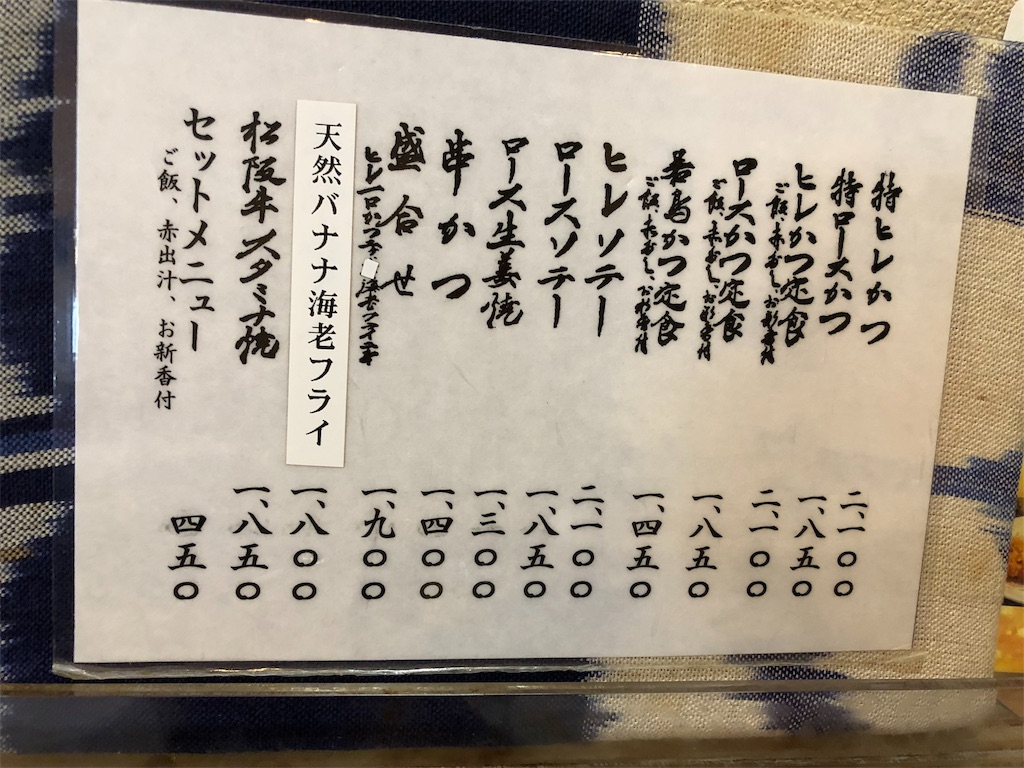 特ヒレかつ 二、一〇〇
特ロースかつ 一、八五〇
ヒレかつ定食 二、一〇〇
ご飯、赤だし、お新香付
ロースかつ定食 一、八五〇
ご飯、赤だし、お新香付
若鳥かつ定食 一、四五〇
ご飯、赤だし、お新香付
ヒレソテー 二、一〇〇
ロースソテー 一、八五〇
ロース生姜焼 一、三〇〇
串かつ 一、四〇〇
盛合せ 一、九〇〇
ヒレ一口かつ 海老フライ
天然バナナ海老フライ 一、八〇〇
松阪牛スタミナ焼 一、八五〇
セットメニュー 四五〇
ご飯、赤出汁、お新香付